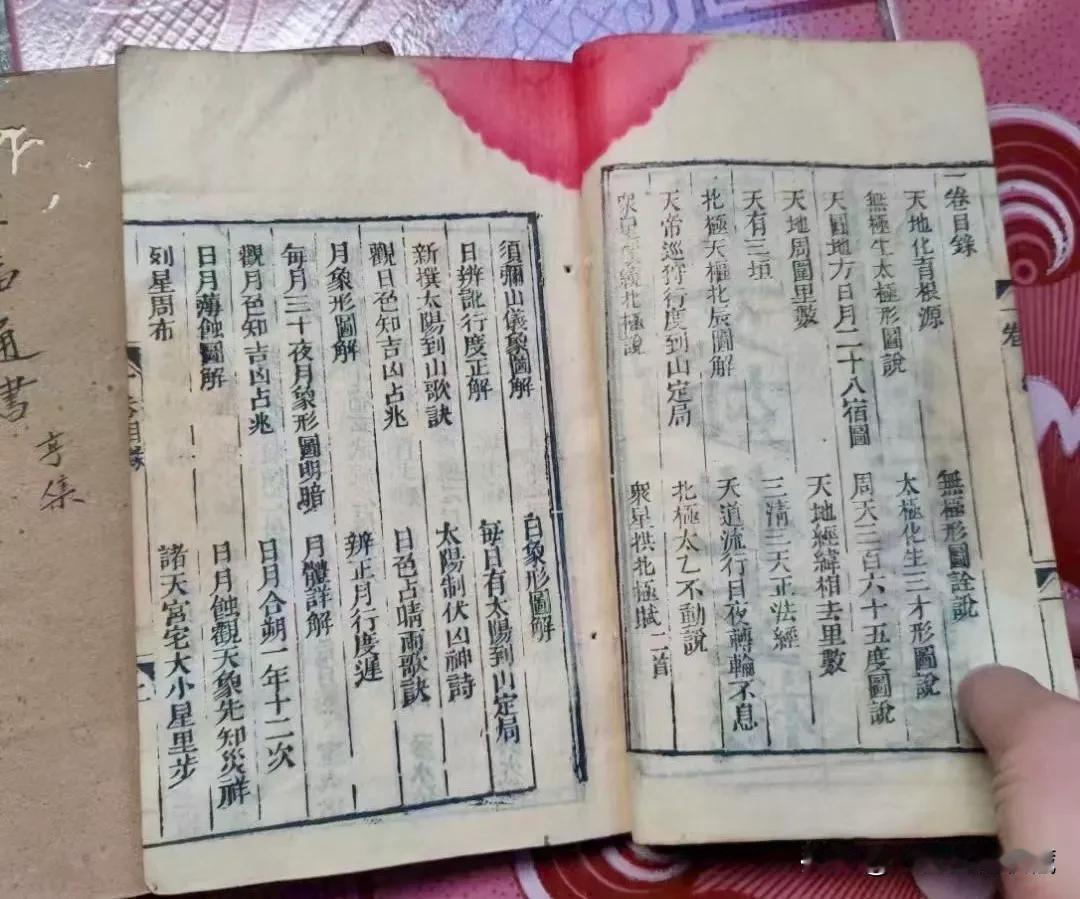 一卷目錄
無極形圖詮說
天地化育根源
太極化生三才形圖說
無極生太極形圖說
周天三百六十五度圖說
天圓地方日月二十八宿圖
天地經緯相去里數
天地周圍里數
三清三天正法經
天有三垣
天道流行日夜轉輪不息
北極天樞北辰圖解
北極太乙不動說
天帝巡狩行度到山定局
衆星拱北極賦二首
一卷
須彌山儀象圖解
日象形圖解
日辨訛行度正解
每日有太陽到山定局
新撰太陽到山歌訣
太陽制伏凶神詩
觀日色知吉凶占兆
日色占晴雨歌訣
月象形圖解
辨正月行度遲
每月三十夜月象形圖明暗
月體詳解
觀月色知吉凶占兆
日月合朔一年十二次
日月薄蝕圖解
日月蝕觀天象先知災祥
列星周布
諸天宮宅大小星里步
目錄
通書
亨集